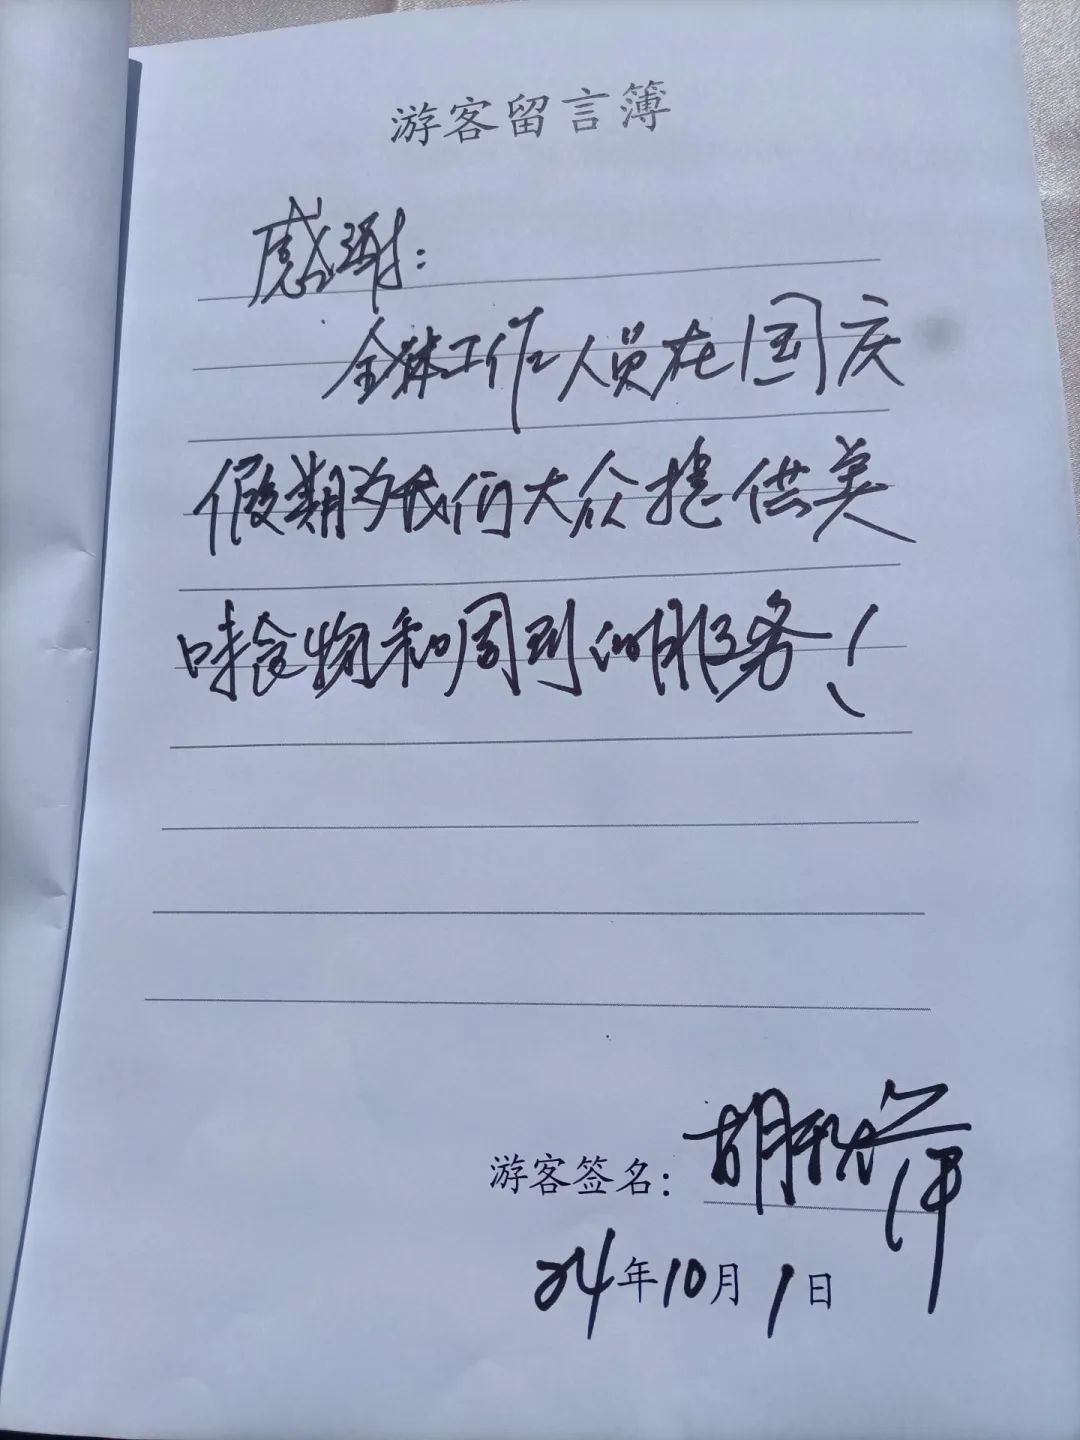 游客留言簿
感谢：
全体工作人员在国庆
假期为我们大众提供美
味食物和周到的服务！
游客签名：胡秋萍
24年10月1日